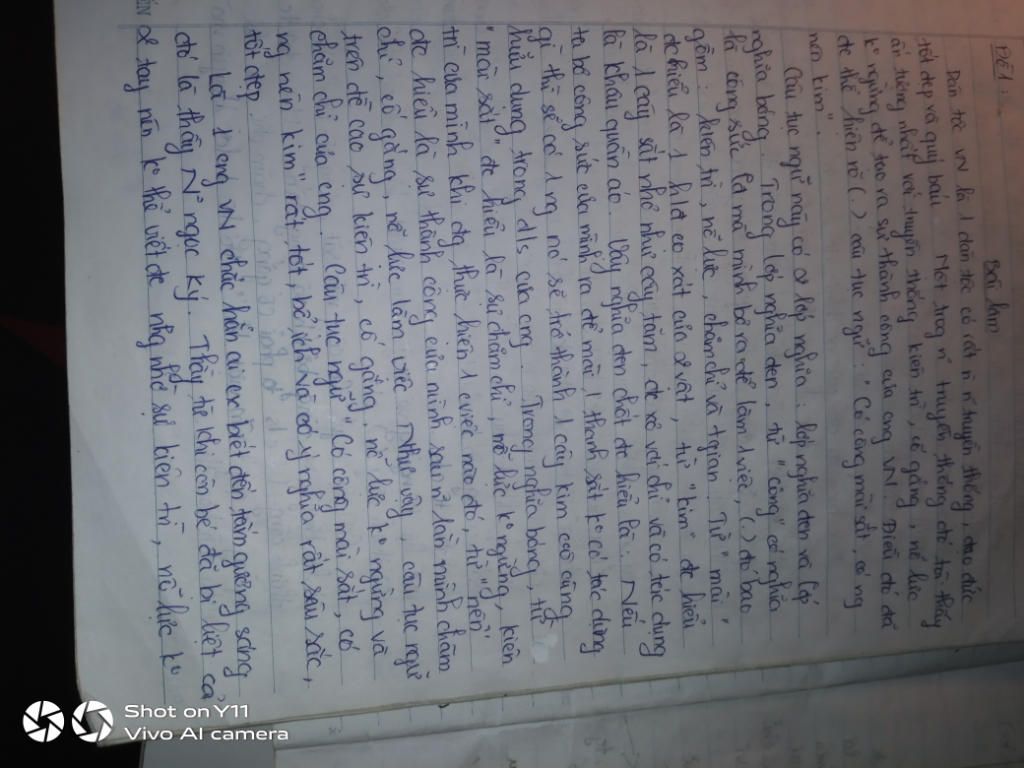 Đề 1:
Bài làm
Dân tộc VN là 1 dân tộc có rất n' truyền thống, đạo đức
tốt đẹp và quý báu. Một trog n' truyền thống đó ta thấy
ấn tượng nhất với truyền thống kiên trì, cố gắng, nỗ lực
kº ngừng để tạo ra sự thành công của cng VN. Điều đó đã
đc thể hiện rõ (.) câu tục ngữ: "Có công mài sắt, có ng
nên kim".
Câu tục ngữ này có 2 lớp nghĩa: lớp nghĩa đen và lớp
nghĩa bóng. Trong lớp nghĩa đen, từ "công" có nghĩa
là công sức lđ mà mình bỏ ra để làm 1 việc, (.) đó bao
gồm: kiên trì, nỗ lực, chăm chỉ và tgian. Từ "mài"
đc hiểu là 1 hđ cọ xát của 2 vật, từ "kim" đc hiểu
là 1 cây sắt nhỏ như cây tăm, đc xỏ với chỉ và có tác dụng
là khâu quần áo. Vậy nghĩa đen chốt đc hiểu là: Nếu
ta bỏ công sức của mình ra để mài 1 thanh sắt kº có tác dụng
gì thì sẽ có 1 ng nó sẽ trở thành 1 cây kim có công
hữu dụng trong đ/s của cng. Trong nghĩa bóng, từ
"mài sắt" đc hiểu là sự chăm chỉ, nỗ lực kº ngừng, kiên
trì của mình khi đg thực hiện 1 cviệc nào đó, từ "nên"
đc hiểu là sự thành công của mình sau n' lần mình chăm
chỉ, cố gắng, nỗ lực làm việc. Như vậy, câu tục ngữ
trên đề cao sự kiên trì, cố gắng, nỗ lực kº ngừng và
chăm chỉ của cng. Câu tục ngữ "Có công mài sắt, có
ng nên kim" rất tốt, bổ ích và có ý nghĩa rất sâu sắc,
tốt đẹp.
Là 1 cng VN chắc hẳn ai cx biết đến tấm gương sáng
đó là thầy Nº ngọc Ký. Thầy từ khi còn bé đã bị liệt cả
2 tay nên kº thể viết đc nhg nhờ sự kiên trì, nỗ lực kº
Shot on Y11
Vivo AI camera